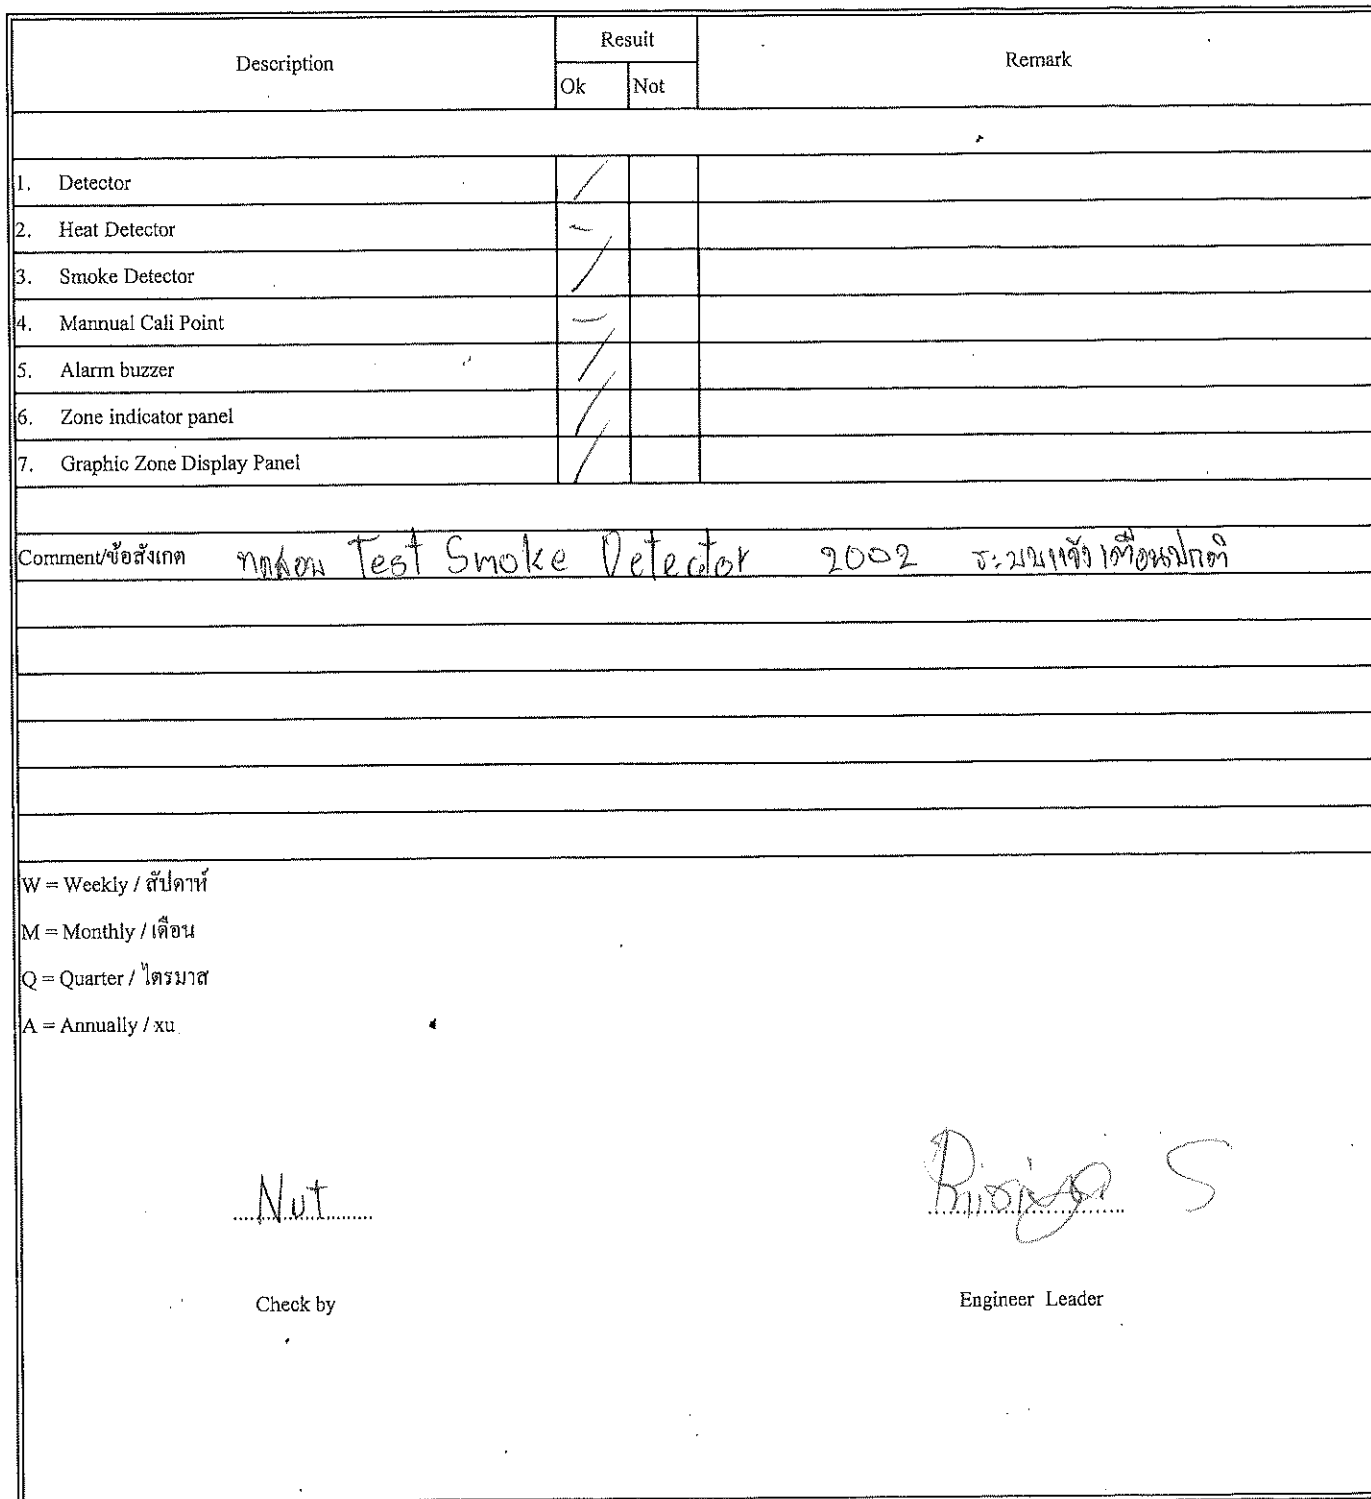 Description Resuit Remark
Ok Not
1. Detector /
2. Heat Detector -
3. Smoke Detector /
4. Mannual Cali Point -
5. Alarm buzzer /
6. Zone indicator panel /
7. Graphic Zone Display Panel /
Comment/ข้อสังเกต ทดสอบ Test Smoke Detector 2002 ระบบแจ้งเตือนปกติ
W = Weekly / สัปดาห์
M = Monthly / เดือน
Q = Quarter / ไตรมาส
A = Annually / xu
Nut S
Check by Engineer Leader